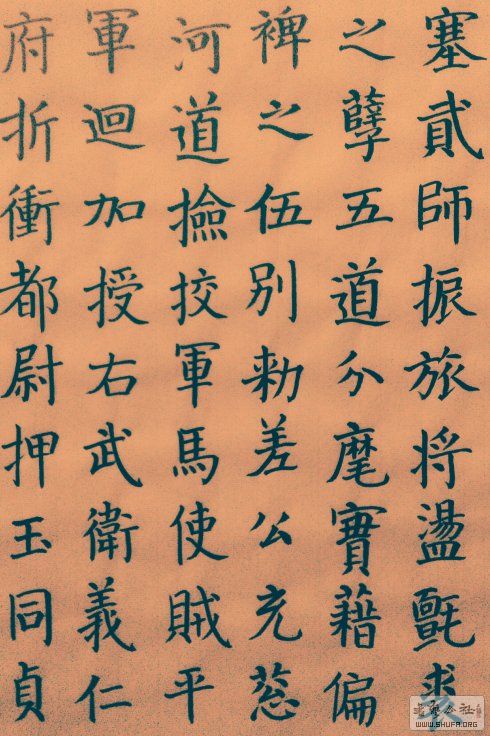 塞貳師振旅将盪氈裘
之孽五道分麾實藉偏
裨之伍别勑差公充葱
河道撿挍軍馬使賊平
軍迴加授右武衛義仁
府折衝都尉押玉同貞
WWW.SHUFA.ORG